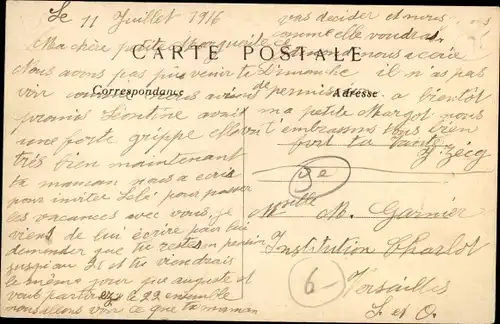 Le 11 Juillet 1916
Ma chère petite Marguerite
CARTE POSTALE
Nous avons pas pu venir te
Correspondance
voir comme nous avions
promis Léontine avait
une forte grippe elle va
très bien maintenant
ta maman nous a écris
pour inviter Lélé pour passer
les vacances avec vous, je
viens de lui écrire pour lui
demander que tu restes en pension
jusqu'au 21 et tu viendrais
le même jour que auguste et
vous partirez le 22 ensemble
nous allons voir ce que ta maman
vas décider et nous
comme elle voudra
nous a écrit
Dimanche il n'as pas
de permission
Adresse
a bientôt
ma petite Margot nous
t'embrassons tous bien
fort ta Tante
De
Melle M. Garnier
Institution Charlot
6
Versailles
S. et O.